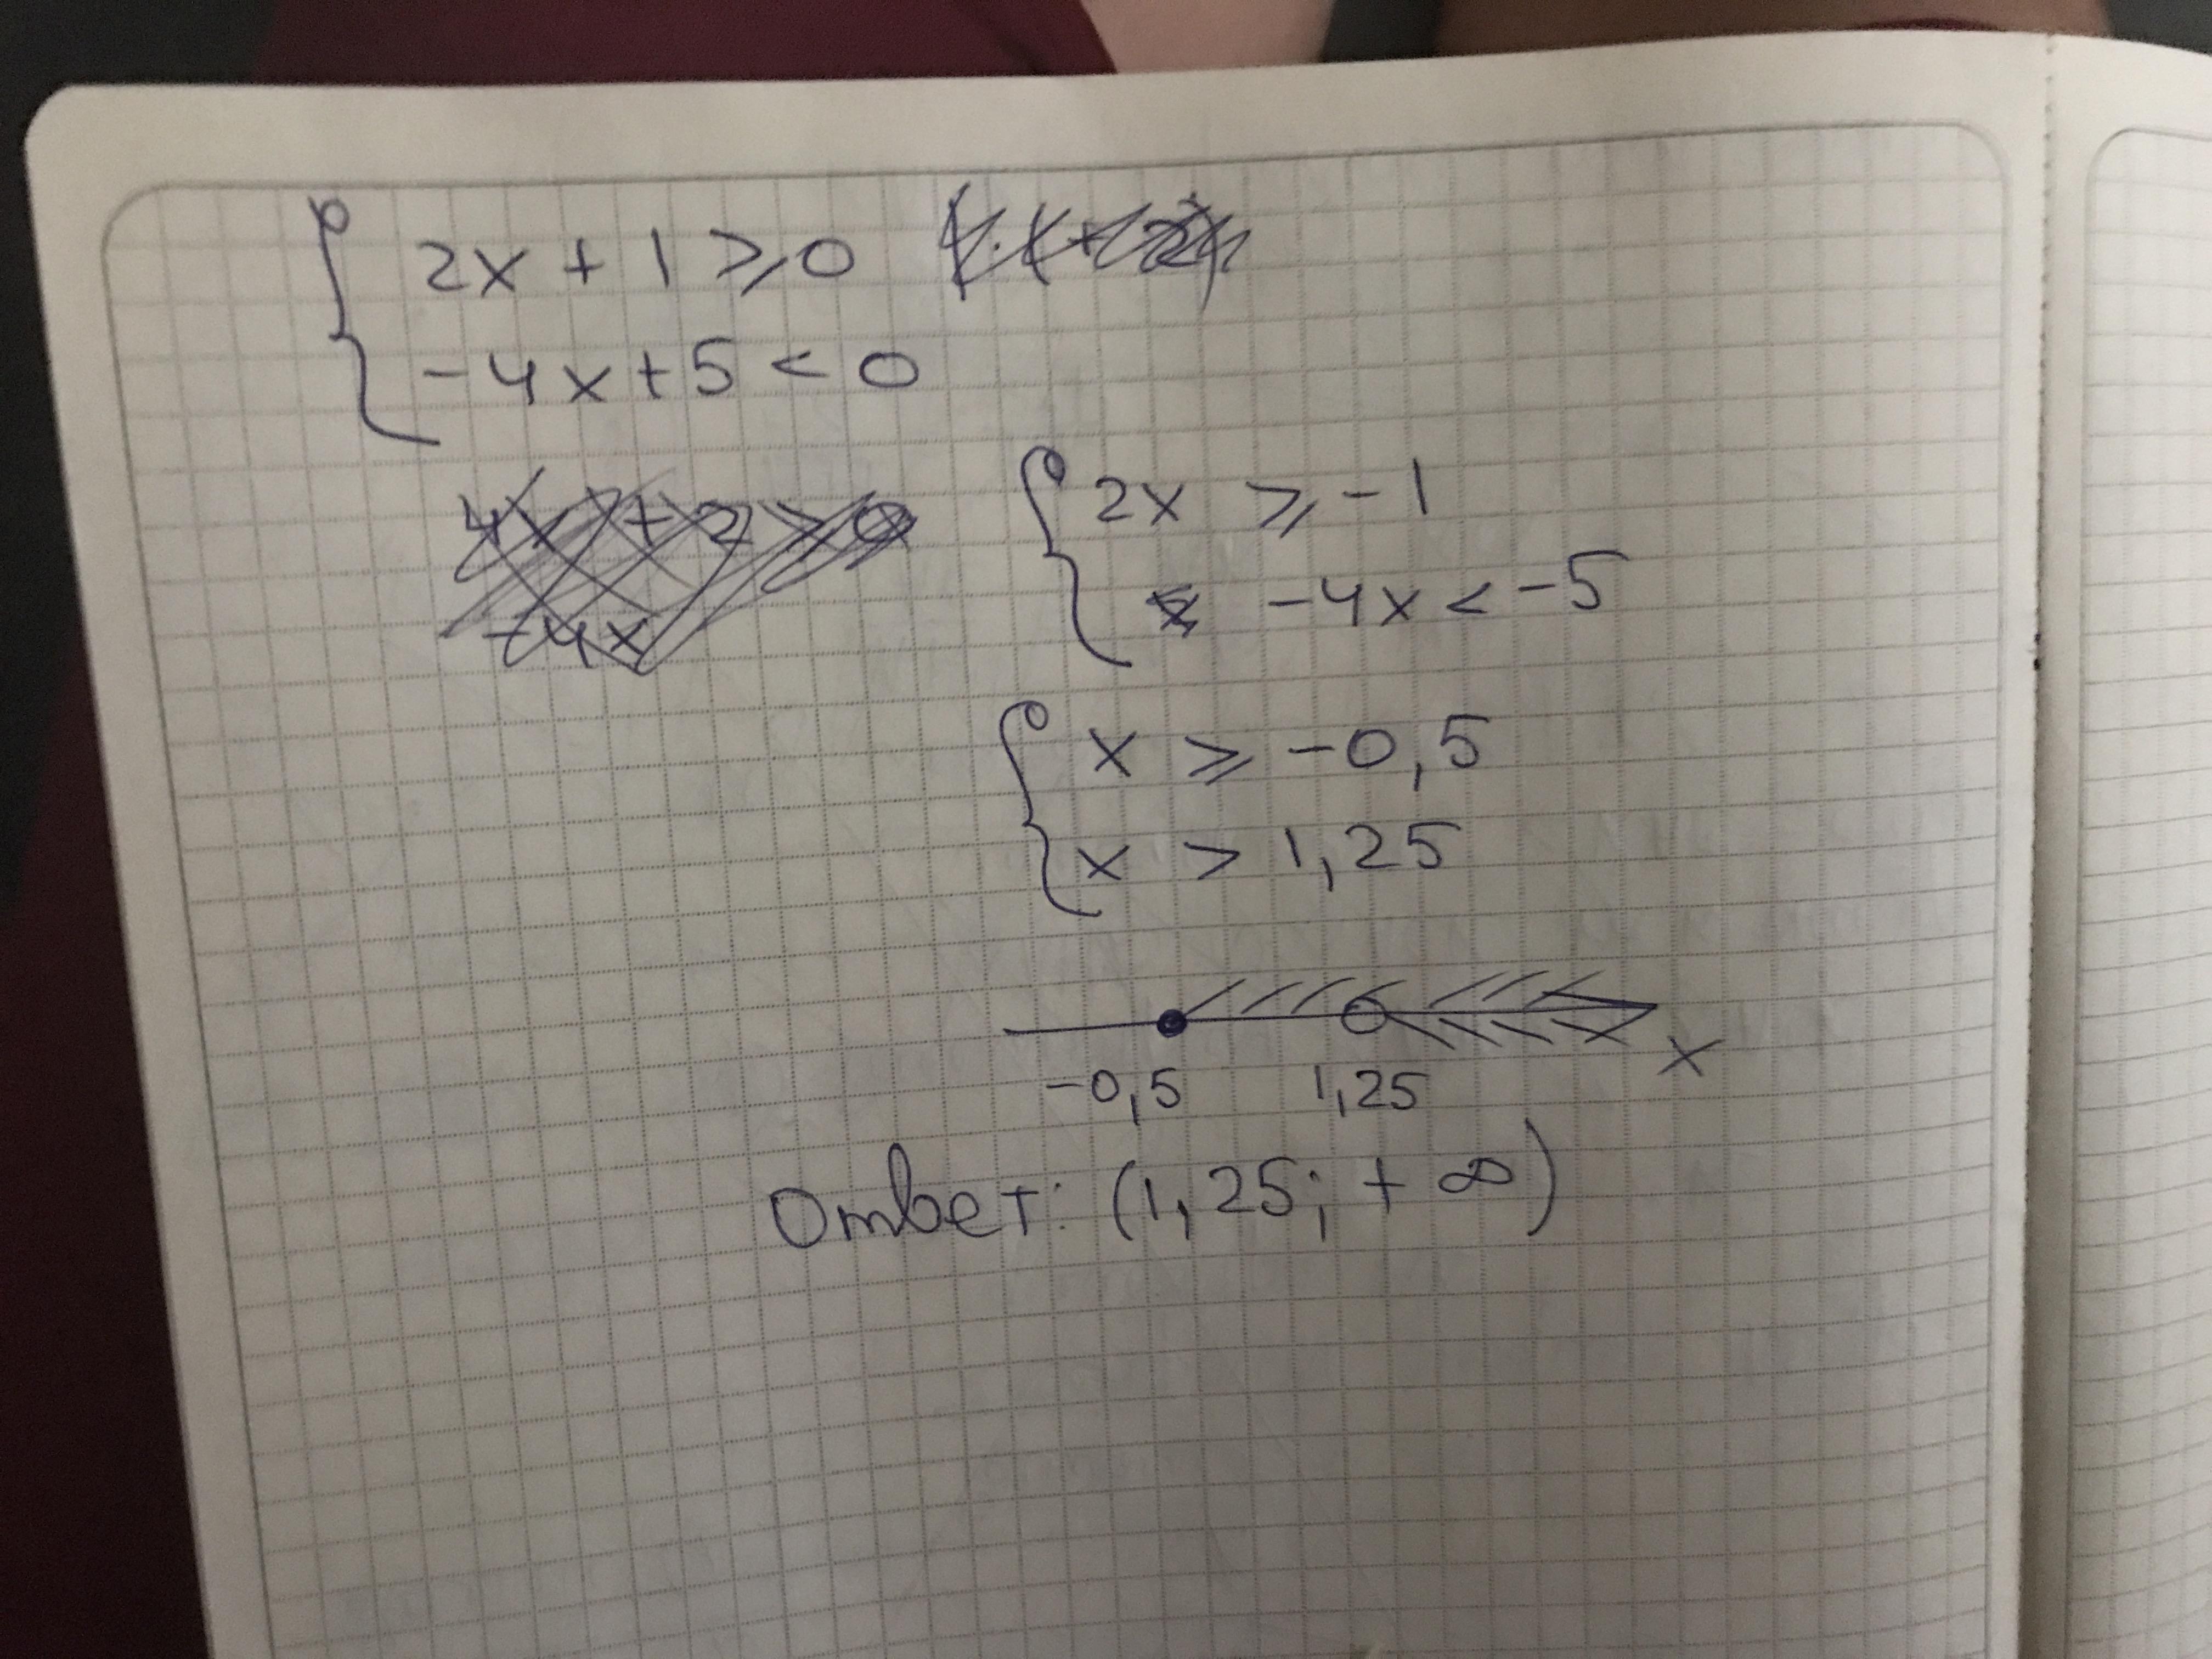 2x + 1 ⩾ 0
-4x + 5 < 0
2x ⩾ -1
-4x < -5
x ⩾ -0,5
x > 1,25
x
-0,5 1,25
Ответ: (1,25; + ∞)